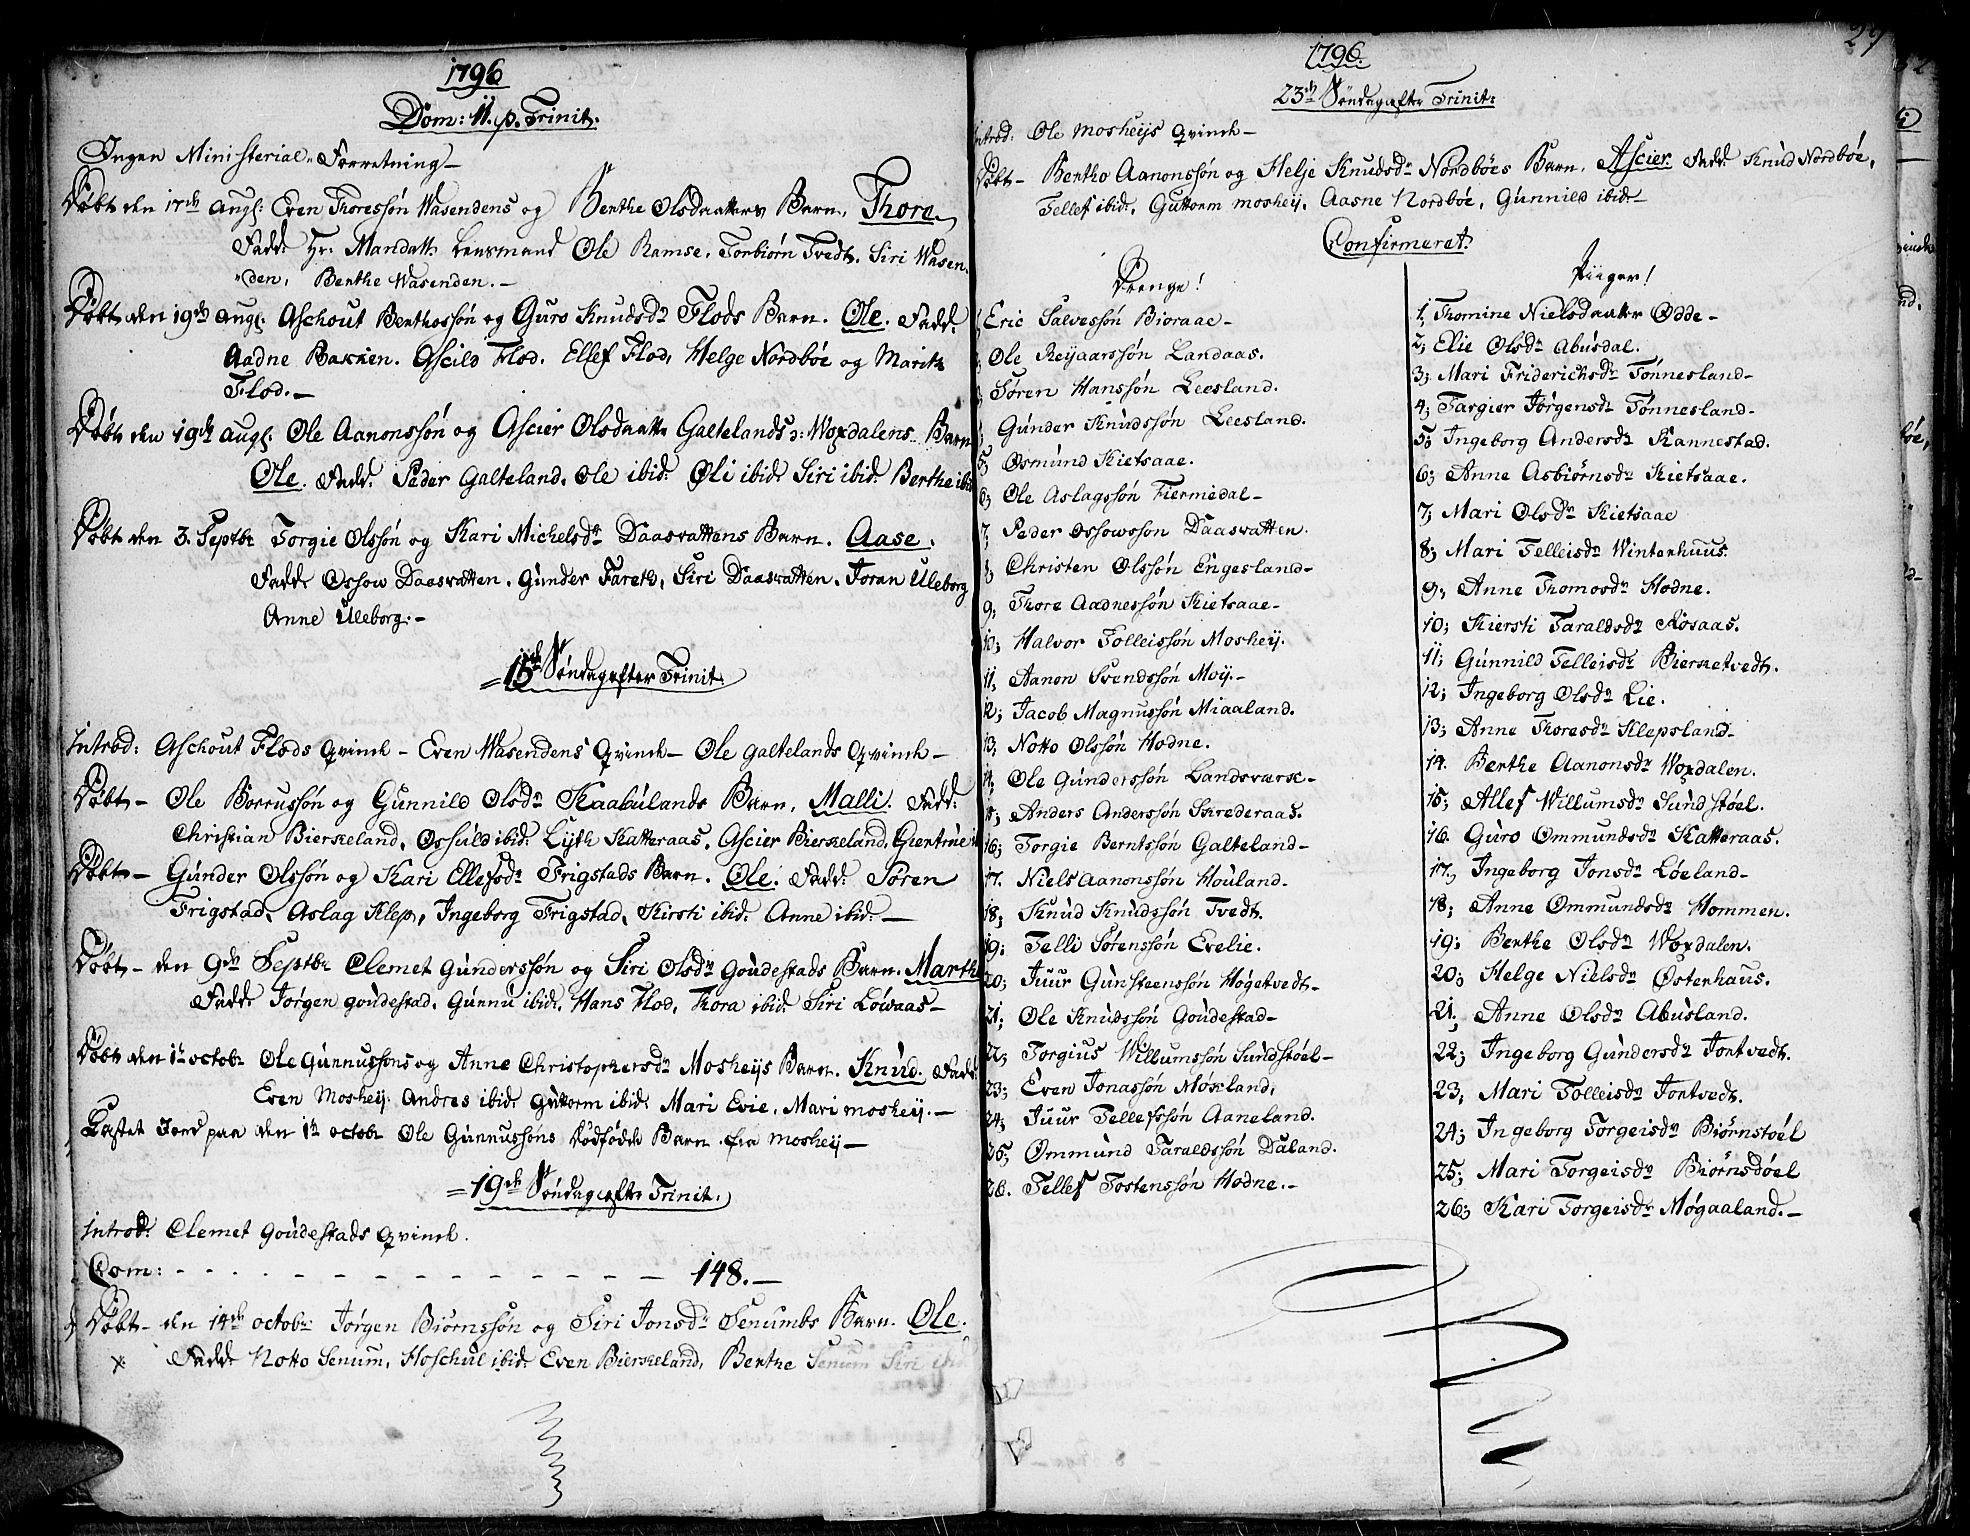 1796
Dom: 11. p. Trinit:
Ingen Ministerial-Forretning—
Døbt den 17de Augl: Even Thoressøn Wasendens og Berthe Olsdaatters Barn, Thore
Fadd: Hr: Mandall, Lensmand Ole Ramse, Torbiørn Tvedt, Siri Wasen-
-den, Berthe Wasenden.—
Døbt den 19de Augl: Aschout Benthossøn og Guro Knudsdr Flods Barn. Ole. Fadd:
Aadne Bakken. Ascild Flod. Ellef Flod, Helge Nordbøe og Marith
Flod.—
Døbt den 19de Augl: Ole Aanonssøn og Ascier Olsdaatter Galtelands Woxdalens Barn
Ole. Fadd: Peder Galteland, Ole ibid: Oli ibid: Siri ibid: Berthe ibid
Døbt den 3. Septbr Torgie Olssøn og Kari Michelsdr Daasvattens Barn. Aase.
Fadd: Ossow Daasvatten, Gunder Fareth, Siri Daasvatten, Joran Uleborg
Anne Uleborg.—
15de Søndag efter Trinit:
Introd: Aschout Flods Qvinde— Even Wasendens Qvinde— Ole Galtelands Qvinde—
Døbt— Ole Borrussøn og Gunnild Olsdr Kaabulands Barn, Malli. Fadd:
Christian Bierkeland, Ossuld ibid: Lyth Katteraas, Ascier Bierkeland,
Døbt— Gunder Olssøn og Kari Ellefsdr Frigstads Barn. Ole. Fadd: Søren
Frigstad, Aslag Klep, Ingeborg Frigstad, Kirsti ibid: Anne ibid:—
Døbt— den 9de Septbr Clemet Gunderssøn og Siri Olsdr Goudestads Barn. Marthe
Fadd: Jørgen Goudestad, Gunnu ibid: Hans Flod, Thora ibid: Siri Løwaas—
Døbt den 1te octobr Ole Gunnussøns og Anne Christophersdr Mosheijs Barn. Knud. Fadd:
Even Moshey. Andres ibid: Guttorm ibid: Mari Evie, Mari moshey.—
Kastet Jord paa den 1te octobr Ole Gunnussøns dødfødde Barn fra moshey—
19de Søndag efter Trinit:
Introd: Clemet Goudestads Qvinde.
Com: - - - - - - - - - - - - 148.—
Døbt— den 14de octobr: Jørgen Biørnssøn og Siri Jonsdr Senumbs Barn. Ole.
Fadd: Notto Senum, Hoschul ibid: Even Bierkeland, Berthe Senum Siri ibid
1796.
29
23de Søndag efter Trinit:
Introd: Ole Mosheijs Qvinde—
Døbt— Bertho Aanonssøn og Helje Knudsdr Nordbøes Barn, Ascier. Fadd: Knud Nordbøe,
Tellef ibid: Guttorm moshey, Aasne Nordbøe, Gunnild ibid:—
Confirmeret:
Drenge!
Eric Salvessøn Bioraae—
Ole Reijaarssøn Landaas.
Søren Hanssøn Leesland.
Gunder Knudssøn Leesland.
5; Osmund Kietsaae.
6; Ole Aslagssøn Fiermedal—
7, Peder Ossowsson Daasvatten.
8; Christen Olssøn Engesland—
9; Thore Aadnessøn Kietsaae—
10; Halvor Tolleissøn Moshey.
11, Aanon Svendssøn Moy.—
12; Jacob Magnussøn Miaaland.
13, Notto Olssøn Hodne.
14, Ole Gunderssøn Landsværk—
15; Anders Anderssøn Skrederaas.
16; Torgie Berntssøn Galteland—
17. Niels Aanonssøn Houland—
18; Knud Knudssøn Tvedt.
19; Telli Sørenssøn Evelie.
20; Juur Gunsteenssøn Høgetvedt—
21; Ole Knudssøn Goudestad—
22; Torgius Willumssøn Sundstøel—
23; Even Jonassøn Møkland,
24; Juur Tellefssøn Aaneland.
25; Ommund Taraldssøn Daland.
26. Tellef Tostenssøn Hodne.—
Piiger!
1, Thomine Nielsdaatter Odde—
2; Elie Olsdr Abusdal.
3; Mari Friderichsdr Tønnesland—
4; Targier Jørgensdr Tønnesland—
5; Ingeborg Andersdr Kannestad.
6; Anne Asbiørnsdr Kietsaae.
7; Mari Olsdr Kietsaae
8; Mari Telleisdr Winterhuus.
9; Anne Thomosdr Hodne.
10; Kiersti Taraldsdr Røsaas.
11; Gunnild Telleisdr Bierketvedt.
12; Ingeborg Olsdr Lie.
13; Anne Thoresdr Klepsland—
14. Berthe Aanonsdr Woxdalen.
15; Allef Willumsdr Sundstøel.
16. Guro Ommundsdr Katteraas.
17., Ingeborg Jonsdr Løeland—
18; Anne Ommundsdr Hommen.
19; Berthe Olsdr Woxdalen.
20; Helge Nielsdr Østerhuus.
21, Anne Olsdr Abusland.
22; Ingeborg Gundersdr Jortvedt.
23, Mari Tolleisdr Jortvedt.
24; Ingeborg Torgeisdr Biørnstøel
25; Mari Torgeisdr Biørnsdøel
26; Kari Torgeisdr Møgaaland.—